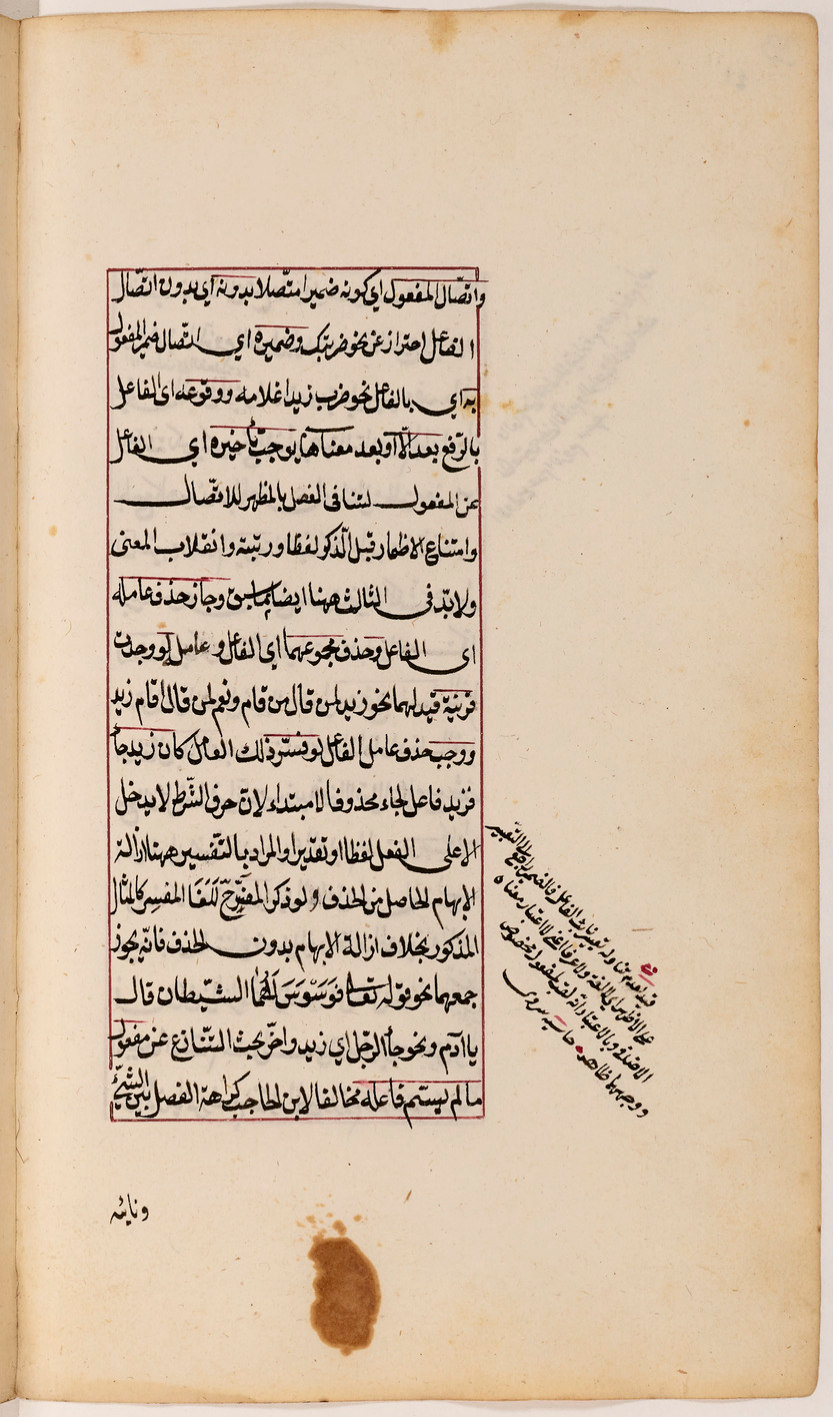 واتّصال المفعول اي كونه ضميرا متّصلا بدونه اي بدون اتّصال
الفاعل احتراز عن نحو ضربتك وضميره اي اتّصال ضمير المفعول
به اي بالفاعل نحو ضرب زيدا غلامه ووقوعه اى الفاعل
بالرّفع بعد الّا او بعد معناها يوجب تأخيره اي الفاعل
عن المفعول لتنافى الفصل بالمظهر للاتّصال
وامتناع الاظمار قبل الّذكر لفظا ورتبة وانقلاب المعنى
ولابدّ فى الثالث ههنا ايضا كما سبق وجاز حذف عامله
اى الفاعل وحذف مجموعهما اي الفاعل وعامله لو وجدت
قرينة قيد لهما نحو زيد لمن قال من قام ونعم لمن قال اقام زيد
ووجب حذف عامل الفاعل لو فسّر ذلك العامل كان زيد جاء
فزيد فاعل لجاء محذوفا لا مبتداء لانّ حرف الشّرط لا يدخل
الا على الفعل لفظا او تقديرا والمراد بالتّفسير ههنا ازالة
الابهام الحاصل من الحذف ولو ذكر المفسَّر ح لَلَغَا المفسِر كالمثال
المذكور بخلاف ازالة الابهام بدون الحذف فانّه يجوز
جمعهما نحو قوله تعالى فَوَسْوَسَ لَهُمَا الشّيطان قال
يا آدم ونحو جاء الرّجل اي زيد واخّر بحث التّنازع عن مفعول
ما لم يسمّ فاعله مخالفا لابن الحاجب كراهة الفصل بين الشّيء
ونايبه
ووجهها ظاهر حاشيه